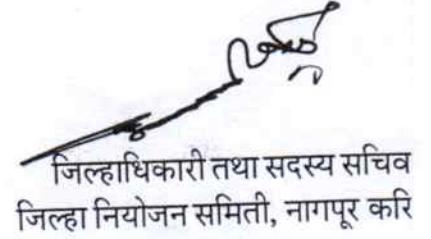 जिल्हाधिकारी तथा सदस्य सचिव
जिल्हा नियोजन समिती, नागपूर करि